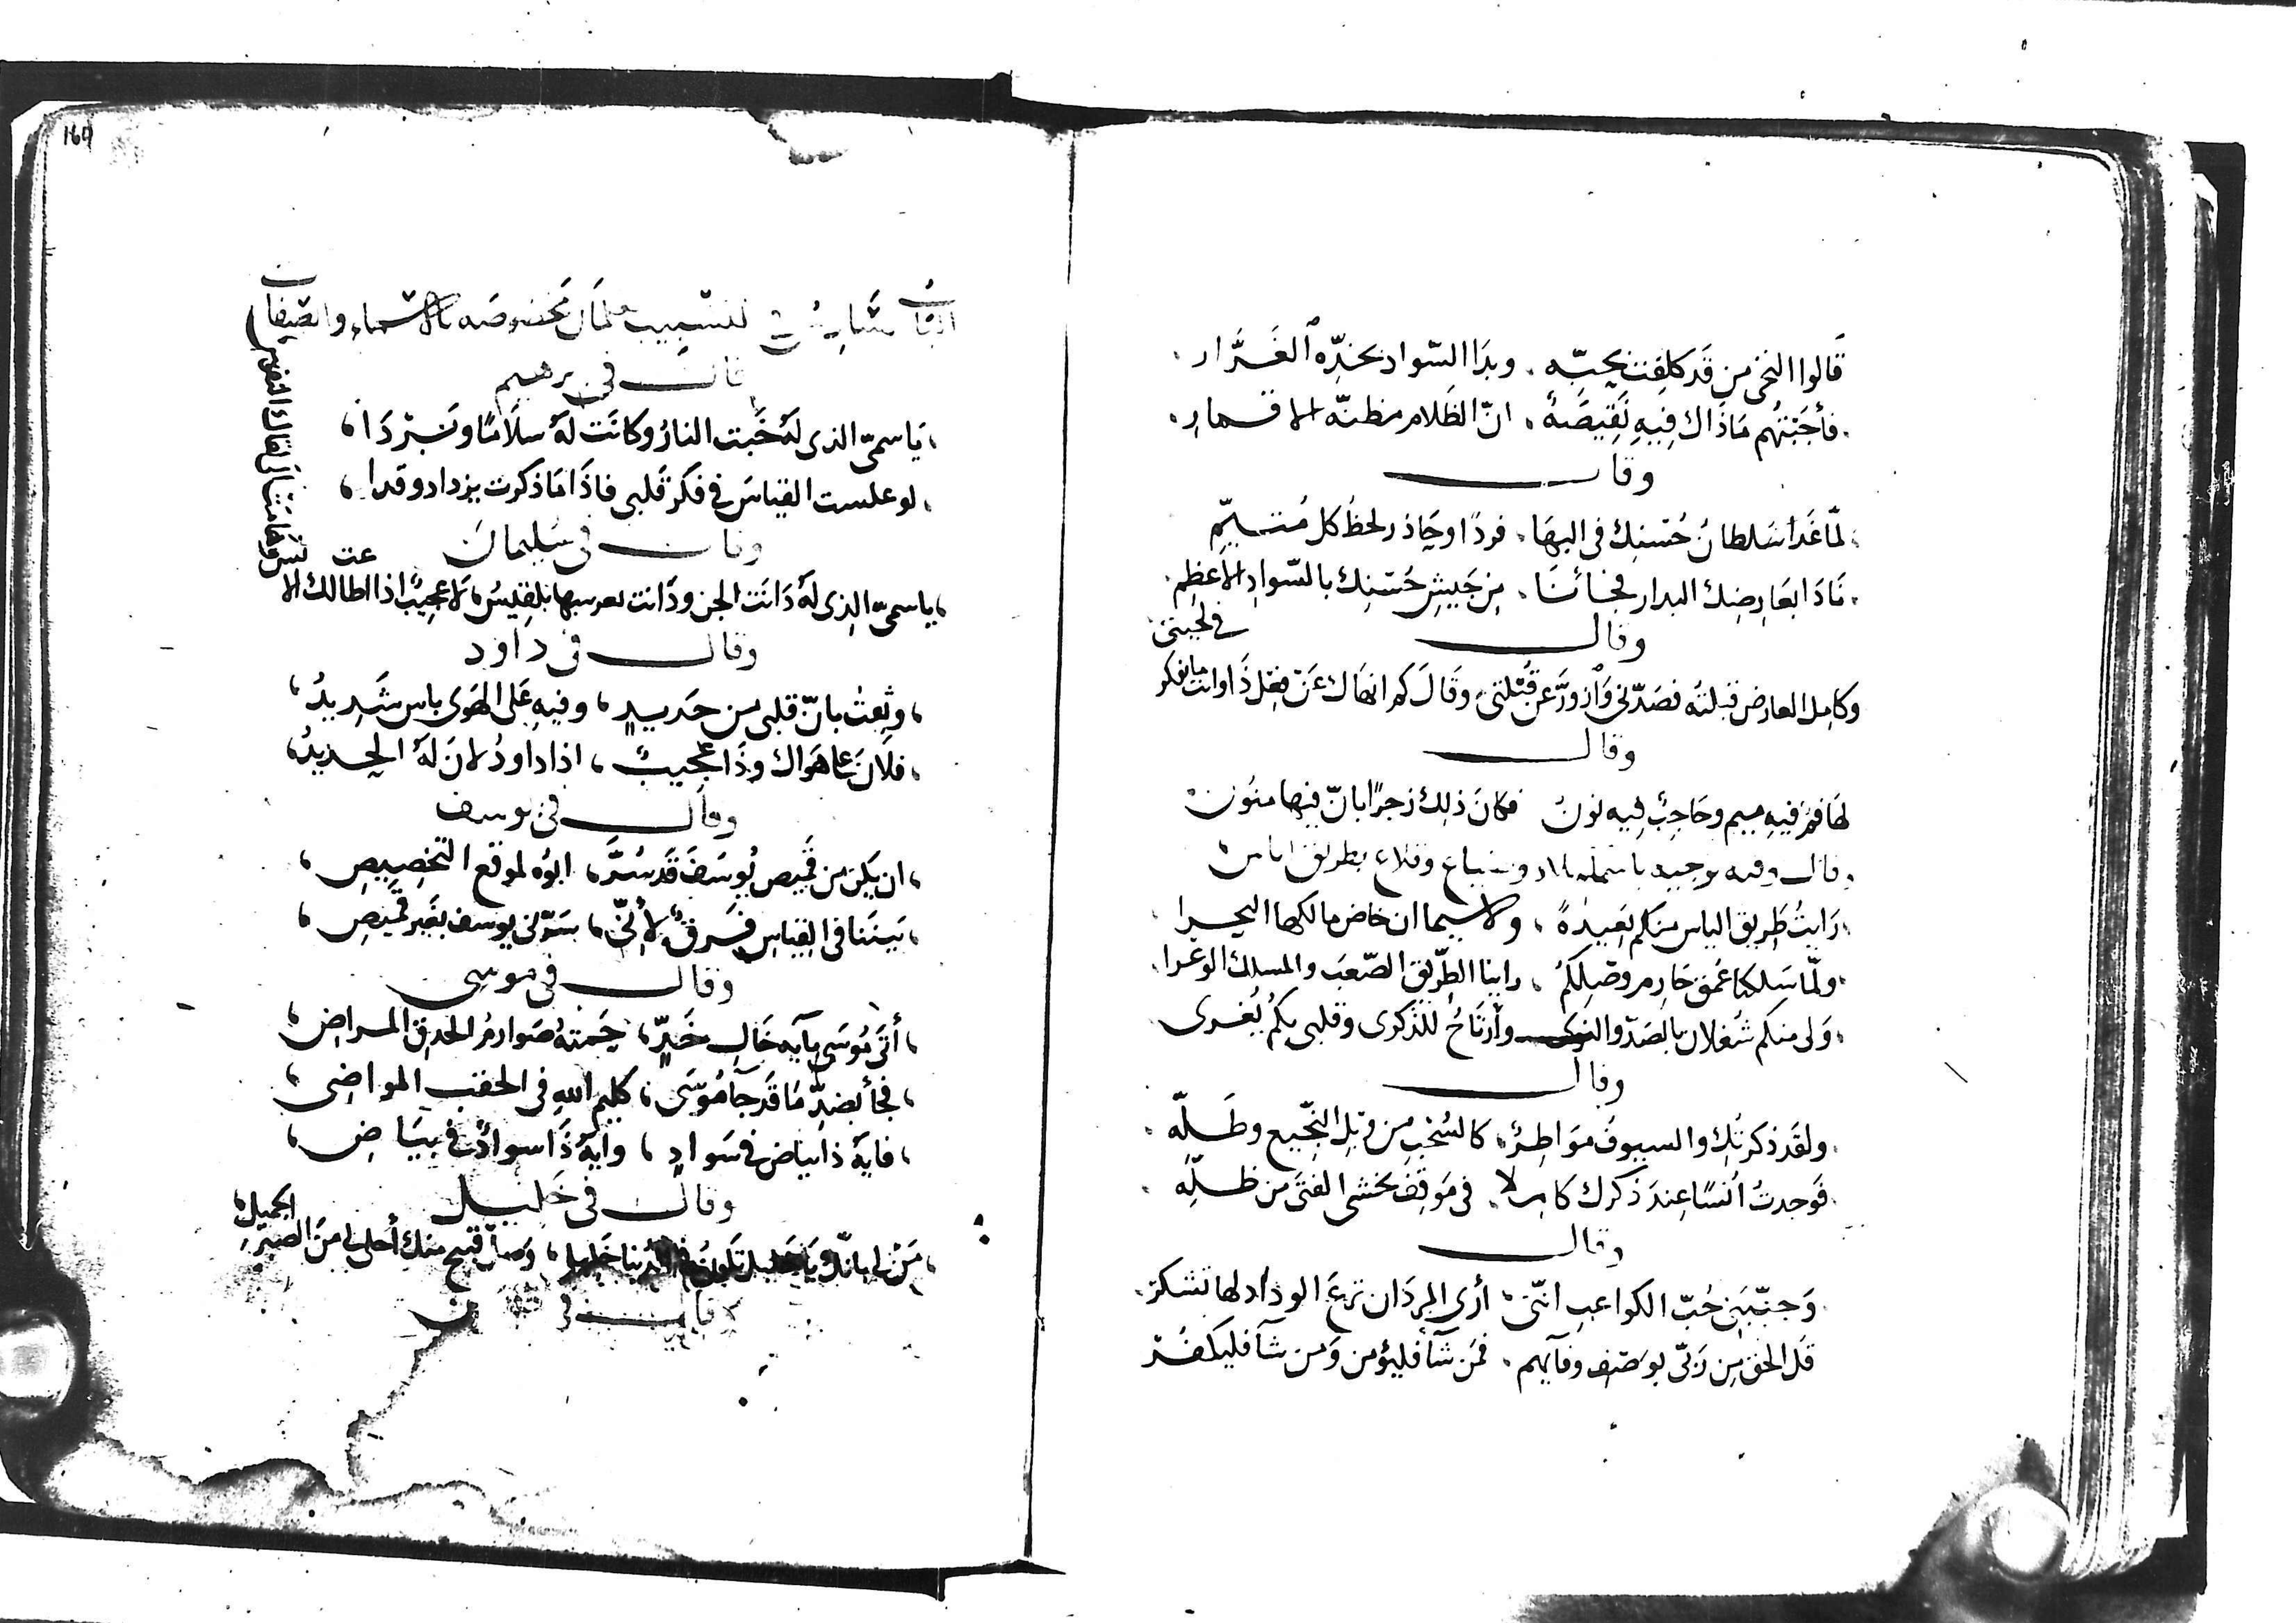 قَالوا التحى من قَد كلِفت بحبّه . وبدَا السّواد بخدِّه الغَرَّار .
. فأجَبتهُم مَاذَاك فِيهِ نَقِيصَةٌ . انّ الظَلام مظنّة الاقمار .
وقال
. لمّا غَدا سَلطانُ حُسنِك في البهَا . فردًا وحَاذر لحظُ كل مُتيّمِ
. نَادَا بعَارِضِك البدار فجَائنَا . مِن جَيشِ حُسْنِك بالسّوادِ الأعظم .
وقال
وكامِل العارض قبلته فصَدّني وَازورَّ عن قُبْلَتي وقَالَ كم انهاك عَن فِعْل ذَا وانت ما تفكر
في لحيتي
وقال
لهَا فمٌ فيهِ ميم وحَاجِبٌ فِيه نونُ فكانَ ذلك زجرًا بانّ فيها منُون
. رَايتُ طَريق الياس منكم بَعِيدةً ، ولاسيما ان خاض مالكها البحرا .
. ولمّا سَلكنا عُمق حَارِم وصْلِكمُ . راينا الطّريق الصّعبَ والمسلك الوعْرا .
. وَلى منكم شُغلان بالصَدّ والنوى وأرْتَاحُ للذّكرى وقلبي بكم يُغرى
وقال
. ولقَد ذكرتُك والسيوفُ مَوَاطِرٌ ، كالسُحْبِ من وَبلِ النَّجيع وطَلّه .
. فَوَجدتُ أُنسًا عِندَ ذكرك كاملا ، في مَوقفٍ يخشى الفتَى من ظلّه .
وقال
. وَجنّبَني حُبّ الكواعب انّني . أرَى المردَان ترعَ الوداد لها تشكر .
قل الحق مِن رَبّي بوَصْف وفآيهم . فمَن شآ فليؤمن وَمن شآ فليكفُرْ
مخصُوصَه بالاسماء والصّفات
قال في برهيم
، يَاسميّ الذي لهُ خَبت النارُ وكانَت لهُ سلاَمًا وبَردَا ،
، لو علمت القياسَ في فكر قلبي فاذَا مَا ذكرت يزداد وقدا ،
وقال في سُليمان
، ياسميّ الذي لهُ دَانَت الجن ودَانت لعرسها بلقِيسُ ، لا عجيبٌ اذا اطالك الا
وقال في داود
، وثِقتُ بانّ قلبي من حَديدٍ ، وفيهِ عَلى الهَوَى باس شَديدُ ،
، فلانَ عَلى هَوَاك وذَا عجيبٌ ، اذا داودُ لانَ لهُ الحَديدُ ،
وقال في يوسف
، ان يكن من قَميص يُوسَفَ قَد سُرَّ ، ابُوه لموقع التخصِيصِ ،
، بَينَنا في القياسِ فَرقٌ لأنّي ، سَرّني يوسف بغَير قميصِ ،
وقال في موسى
، أتَى مُوسَى بآيه خَال خَدٍّ ، حَمتهُ صَوارمُ الحدقِ المراضِ ،
، فجأ بضدِّ مَا قَد جآ مُوسَى ، كليم اللهِ في الحقب المواضي ،
، فايَةُ ذا بياض في سَوادٍ ، وايةُ ذَا سوادٌ في بيَاض ،
وقال في خَليل
، مَنْ لي بانّك يَا خَليل تكون في الدُنيا خَليلي ، وَصلٌ قبيح منك أحلى لي مِنَ الصبرِ
الجميلِ ،